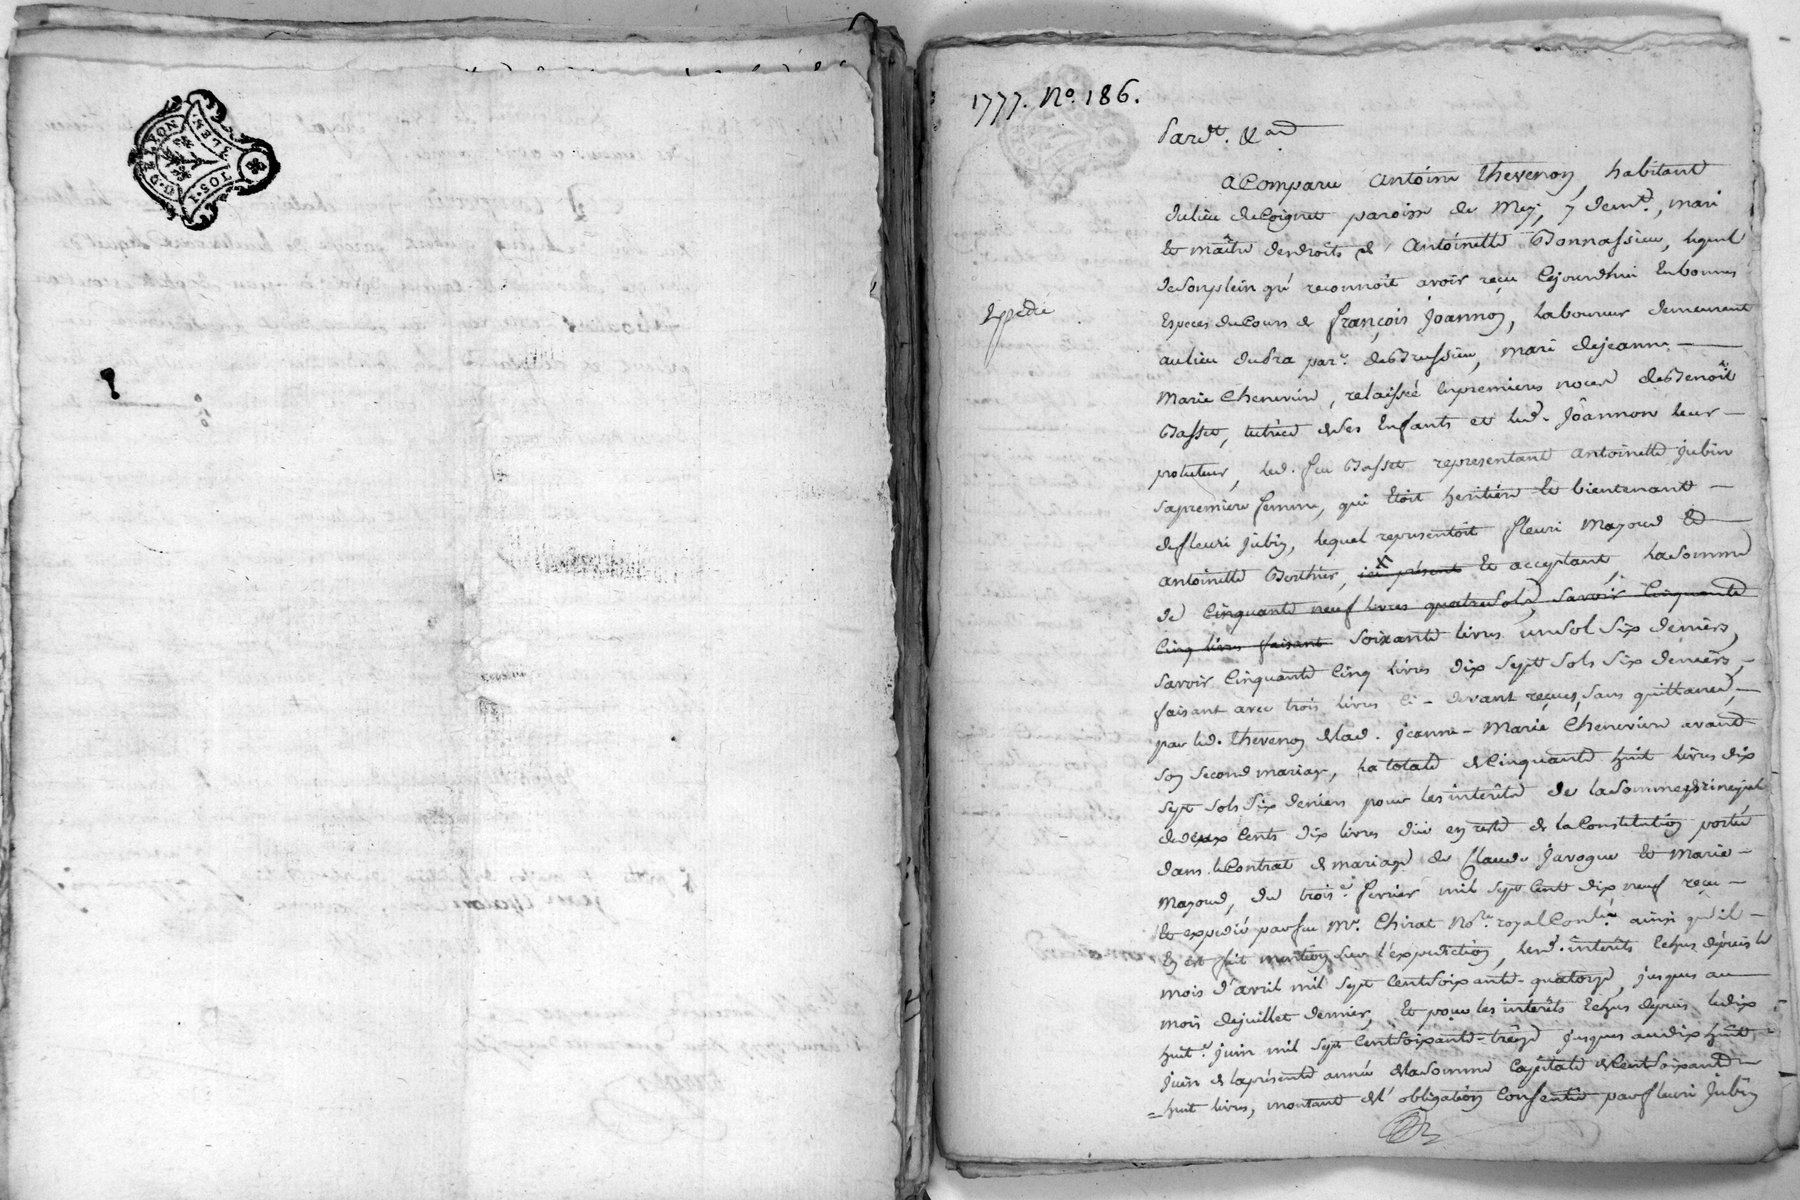 G. DE LYON
MELEN.
1. SOL. 
1777. No. 186.
Pardt. &a
a Comparu Antoine thevenon, habitant
du lieu de Coignet paroisse de Meys, y demt., mari
et maître des droits de Antoinette Bonnassieu, lequel
de son plein gré reconnoit avoir reçu Cejourdhui En bonnes
Especes du Cours de françois Joannon, Laboureur demeurant
au lieu du pra par. de Brussieu, mari de jeanne
Expedié
Marie Chenevier, relaissée En premieres noces de Benoît
Basset, tutrice de ses Enfants et led. Joannon leur
protuteur, led. feu Basset representant antoinette jubin
sa premiere femme, qui Etoit heritiere et bientenant
de fleuri jubin, lequel representoit fleuri Mazoud Et
antoinette Berthier, ici présent Et acceptant, la somme
de Cinquante neuf livres quatre Sols, Savoir Cinquante
Cinq livres faisant Soixante livres un Sol Six deniers,
Savoir Cinquante Cinq livres dix Sept Sols Six deniers,
faisant avec trois livres Ci-devant reçues, Sans quittance,
par led. thevenon de lad. jeanne-Marie Chenevier avant
son Second mariage, la totale de Cinquante huit livres dix
Sept Sols Six deniers pour les interêts de la Somme principale
de deux Cents dix livres düe en reste de la Constitution portée
dans le Contrat de mariage de Claude Javogue Et Marie
Mazoud, du trois.e fevrier mil Sept Cent dix neuf reçu
Et expedié par feu Me. Chirat No.re royal ainsi qu'il
En est fait mention Sur l'expedition, lesd. interêts Echus depuis le
mois d'avril mil Sept Cent Soixante-quatorze, jusques au
mois de juillet dernier, Et pour les interêts Echus depuis le dix
huit.e juin mil Sept Cent Soixante-treize jusques au dix huit
juin de la présente année de la Somme Capitale de Cent Soixante
huit livres, montant de l'obligation Consentie par fleuri Jubin